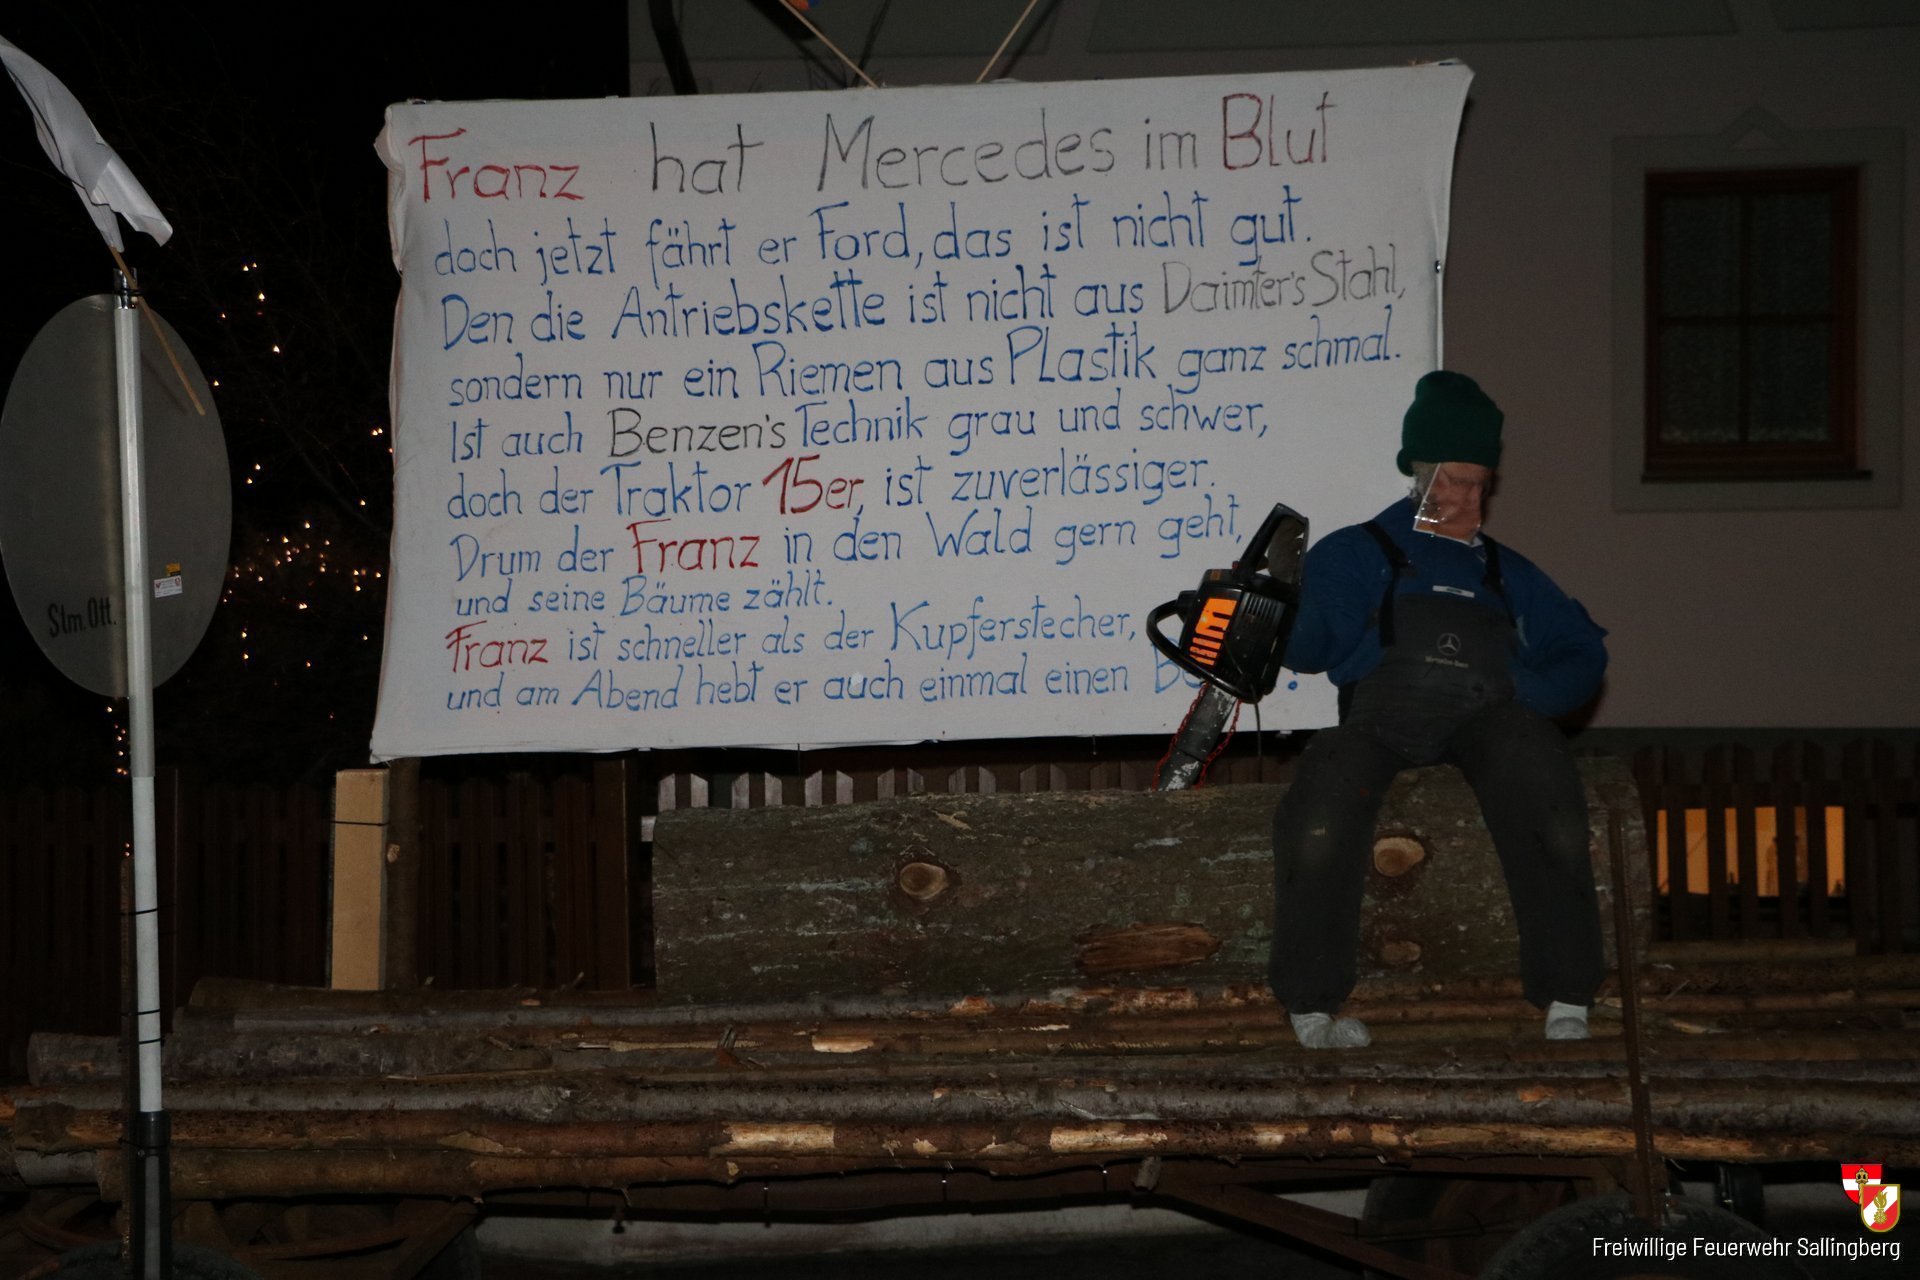 Franz hat Mercedes im Blut
doch jetzt fährt er Ford, das ist nicht gut.
Den die Antriebskette ist nicht aus Daimler's Stahl,
sondern nur ein Riemen aus Plastik ganz schmal.
Ist auch Benzen's Technik grau und schwer,
doch der Traktor 15er, ist zuverlässiger.
Drum der Franz in den Wald gern geht,
und seine Bäume zählt.
Franz ist schneller als der Kupferstecher,
und am Abend hebt er auch einmal einen
Stm. Ott.
Mercedes-Benz
Freiwillige Feuerwehr Sallingberg